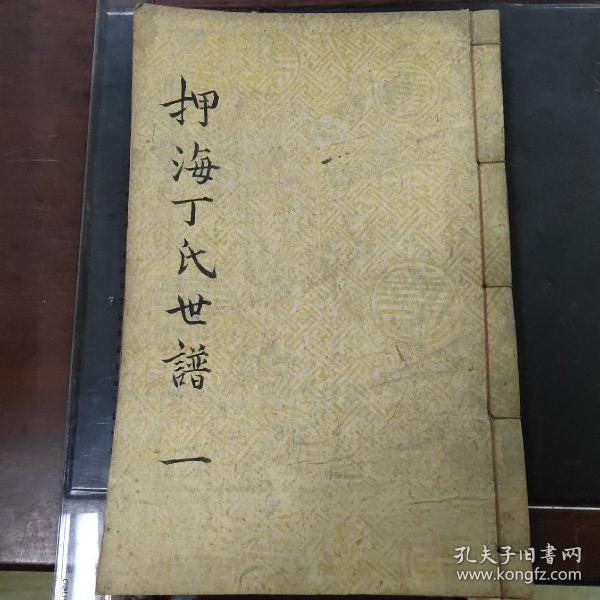 押海丁氏世譜 一
孔夫子旧書网
www.kongfz.com